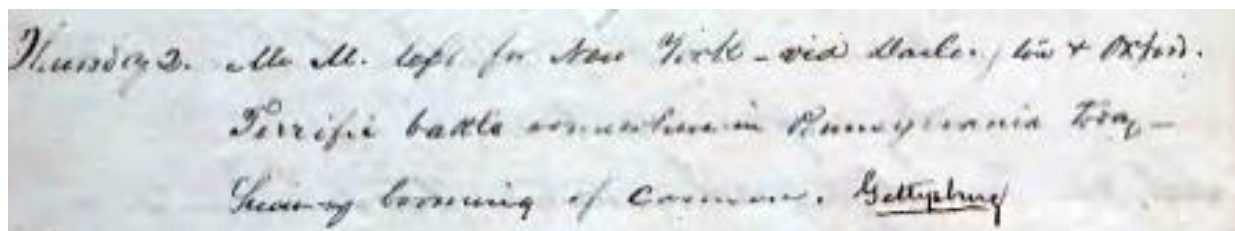 Thursday 2. Mr M. left for New York - via Darlington & Oxford.
Terrific battle somewhere in Pennsylvania today -
booming of Cannon. Gettysburg